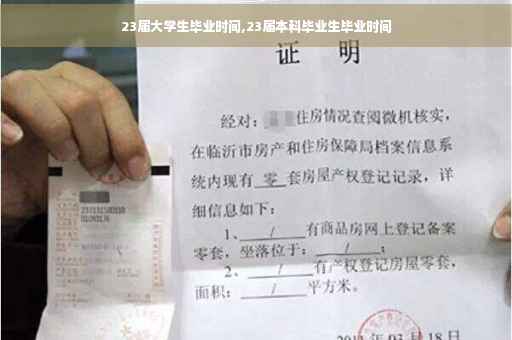 23届大学生毕业时间,23届本科毕业生毕业时间
证 明
经对：住房情况查阅微机核实，
在临沂市房产和住房保障局档案信息系
统内现有 零 套房屋产权登记记录，详
细信息如下：
1、 / 有商品房网上登记备案
零套，坐落位于： / ；
2、 / 有产权登记房屋零套，
面积： / 平方米。
03 月 18 日